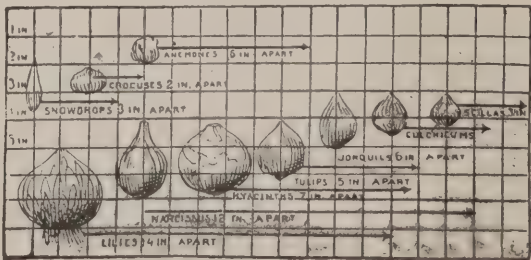 1 IN
2 IN
ANEMONES 6 IN APART
3 IN
CROCUSES 2 IN. APART
4 IN
SNOWDROPS 3 IN APART
SCILLAS 3 IN
COLCHICUMS
5 IN
JONQUILS 6 IN APART
TULIPS 5 IN APART
HYACINTHS 7 IN. APART
NARCISSUS 12 IN. APART
LILIES 14 IN APART